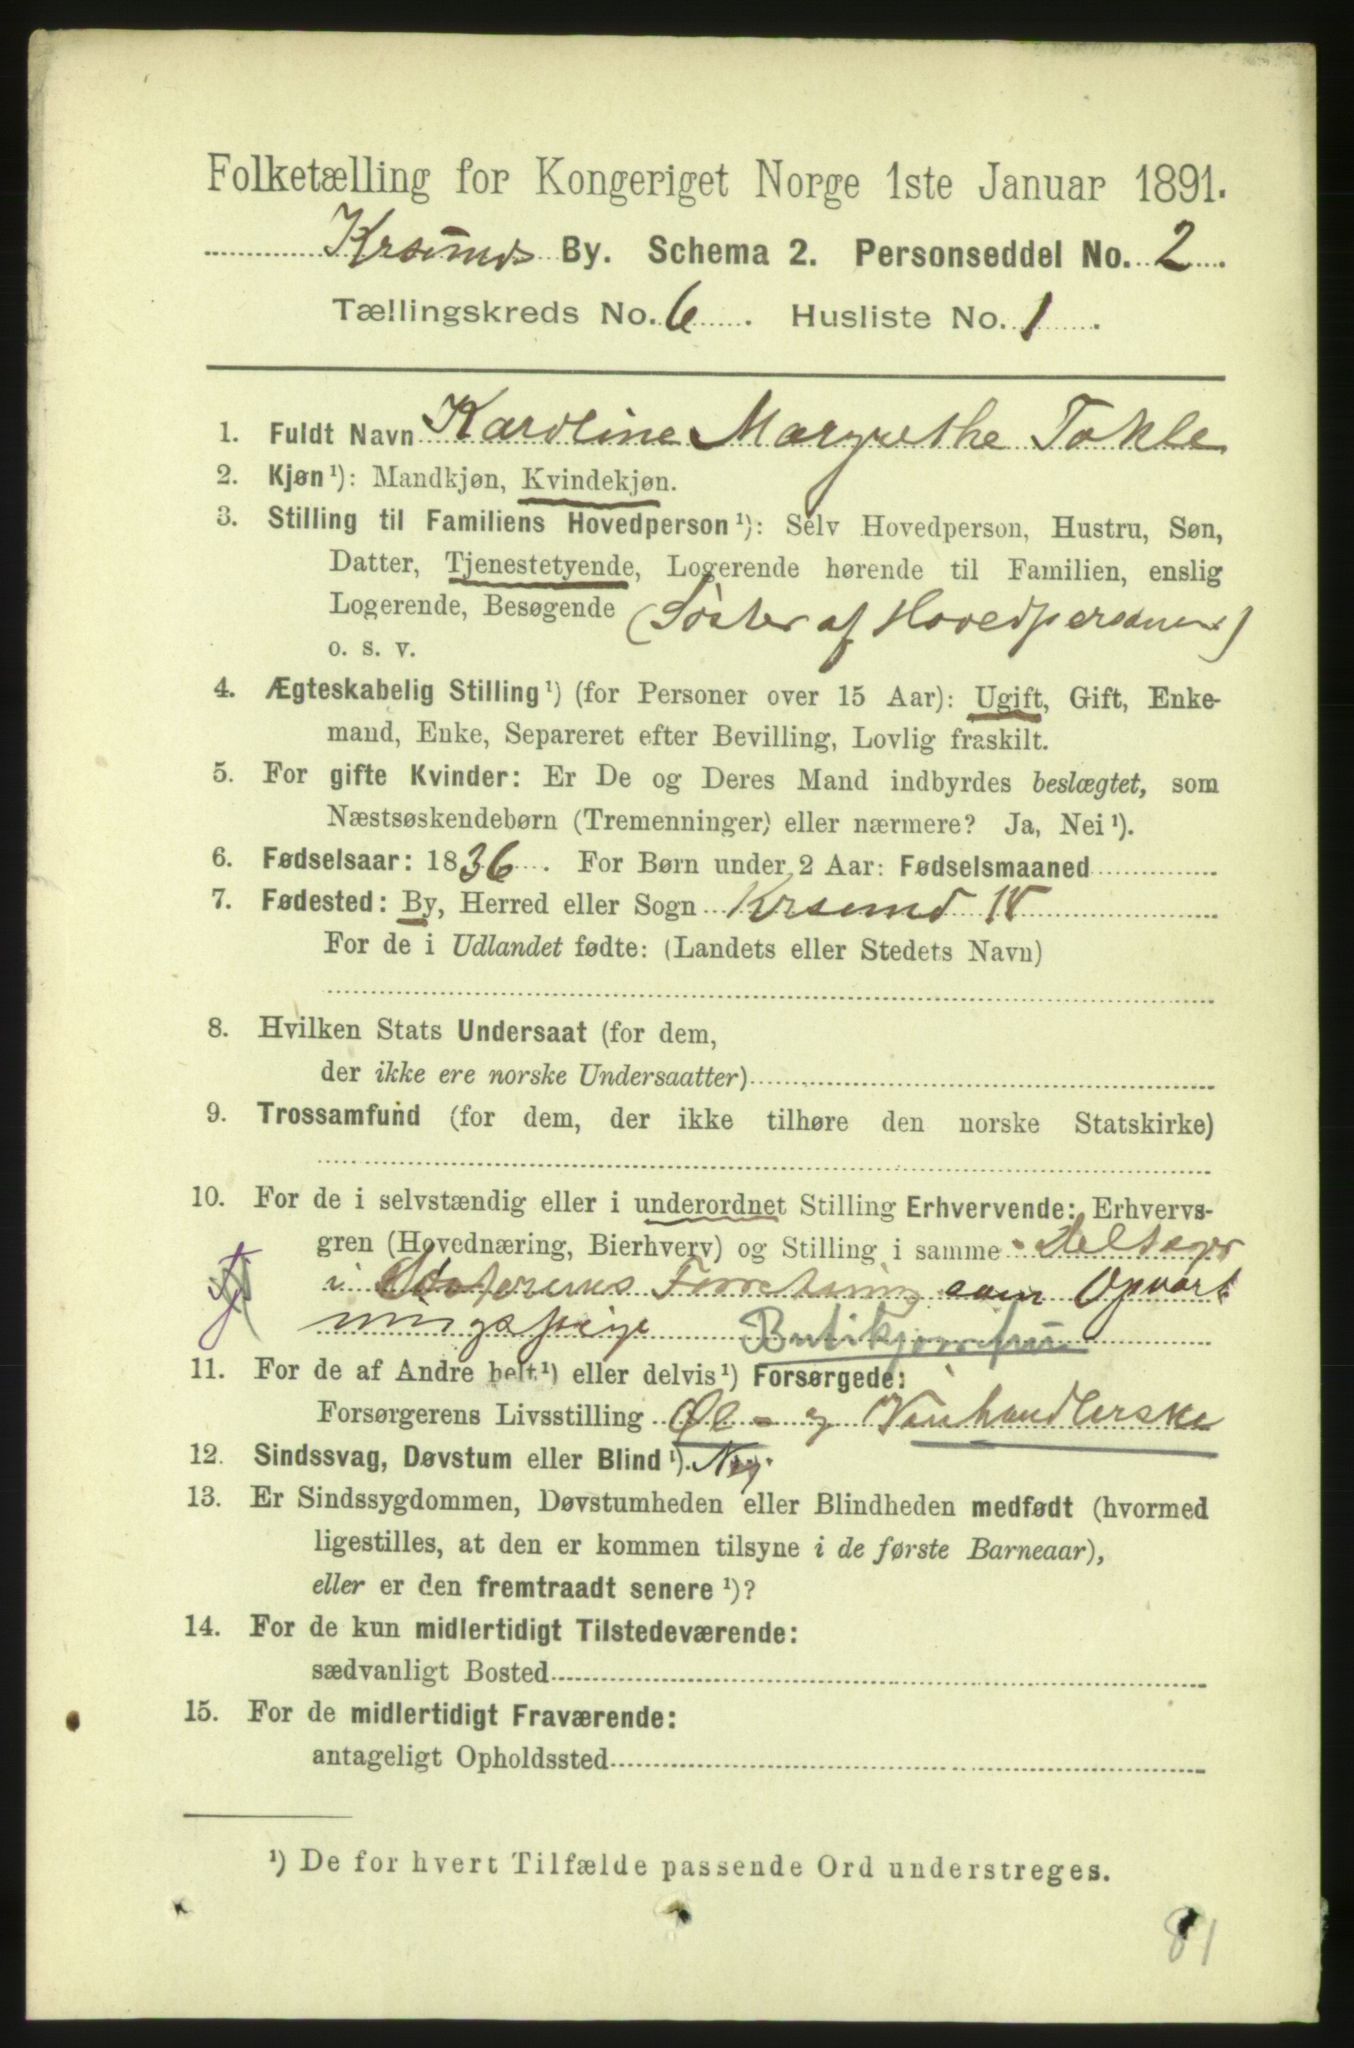 Folketælling for Kongeriget Norge 1ste Januar 1891.
Krsunds By. Schema 2. Personseddel No. 2.
Tællingskreds No. 6. Husliste No. 1.
1. Fuldt Navn Karoline Margrethe Takle
2. Kjøn¹): Mandkjøn, Kvindekjøn.
3. Stilling til Familiens Hovedperson¹): Selv Hovedperson, Hustru, Søn,
Datter, Tjenestetyende, Logerende hørende til Familien, enslig
Logerende, Besøgende (Søster af Hovedpersonen)
o. s. v.
4. Ægteskabelig Stilling¹) (for Personer over 15 Aar): Ugift, Gift, Enke-
mand, Enke, Separeret efter Bevilling, Lovlig fraskilt.
5. For gifte Kvinder: Er De og Deres Mand indbyrdes beslægtet, som
Næstsøskendebørn (Tremenninger) eller nærmere? Ja, Nei¹).
6. Fødselsaar: 1836. For Børn under 2 Aar: Fødselsmaaned
7. Fødested: By, Herred eller Sogn Krsund
For de i Udlandet fødte: (Landets eller Stedets Navn)
8. Hvilken Stats Undersaat (for dem,
der ikke ere norske Undersaatter)
9. Trossamfund (for dem, der ikke tilhøre den norske Statskirke)
10. For de i selvstændig eller i underordnet Stilling Erhvervende: Erhvervs-
gren (Hovednæring, Bierhverv) og Stilling i samme Deltager
i Søsterens Forretning som Opvart
ningspige
11. For de af Andre helt¹) eller delvis¹) Forsørgede:
Forsørgerens Livsstilling Øl- og Vinhandlerske
12. Sindssvag, Døvstum eller Blind¹). Nej.
13. Er Sindssygdommen, Døvstumheden eller Blindheden medfødt (hvormed
ligestilles, at den er kommen tilsyne i de første Barneaar),
eller er den fremtraadt senere¹)?
14. For de kun midlertidigt Tilstedeværende:
sædvanligt Bosted
15. For de midlertidigt Fraværende:
antageligt Opholdssted
¹) De for hvert Tilfælde passende Ord understreges.
81